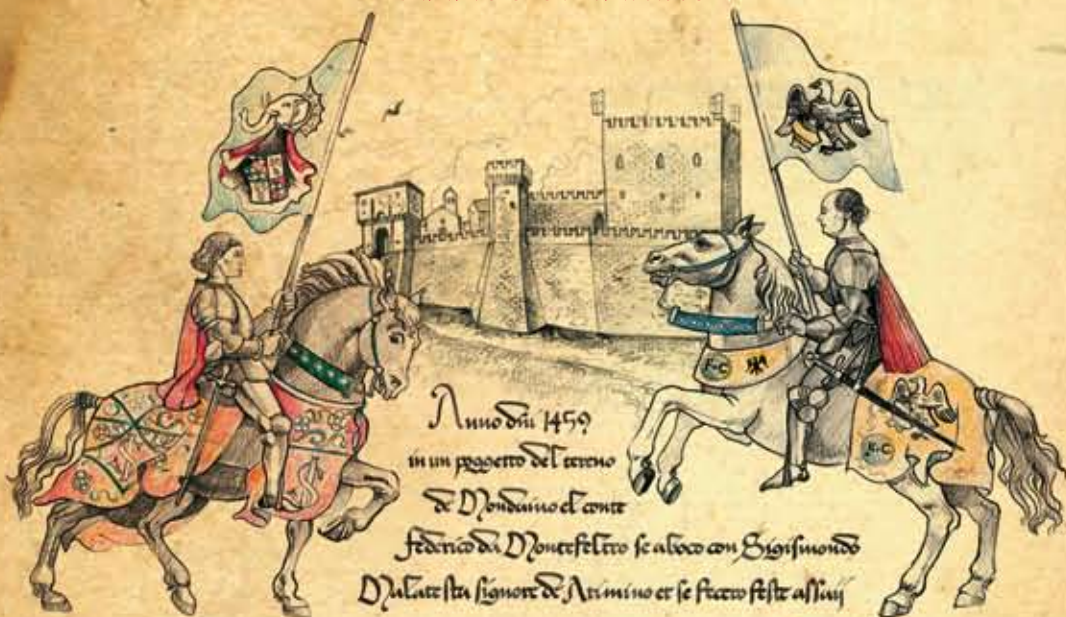 Anno dñi 1459
in un poggetto del tereno
de Mondaino el conte
federico da Montefeltro se aboco con Sigismondo
Malatesta signore de Arimino et se fecero feste assaij
F C
F C